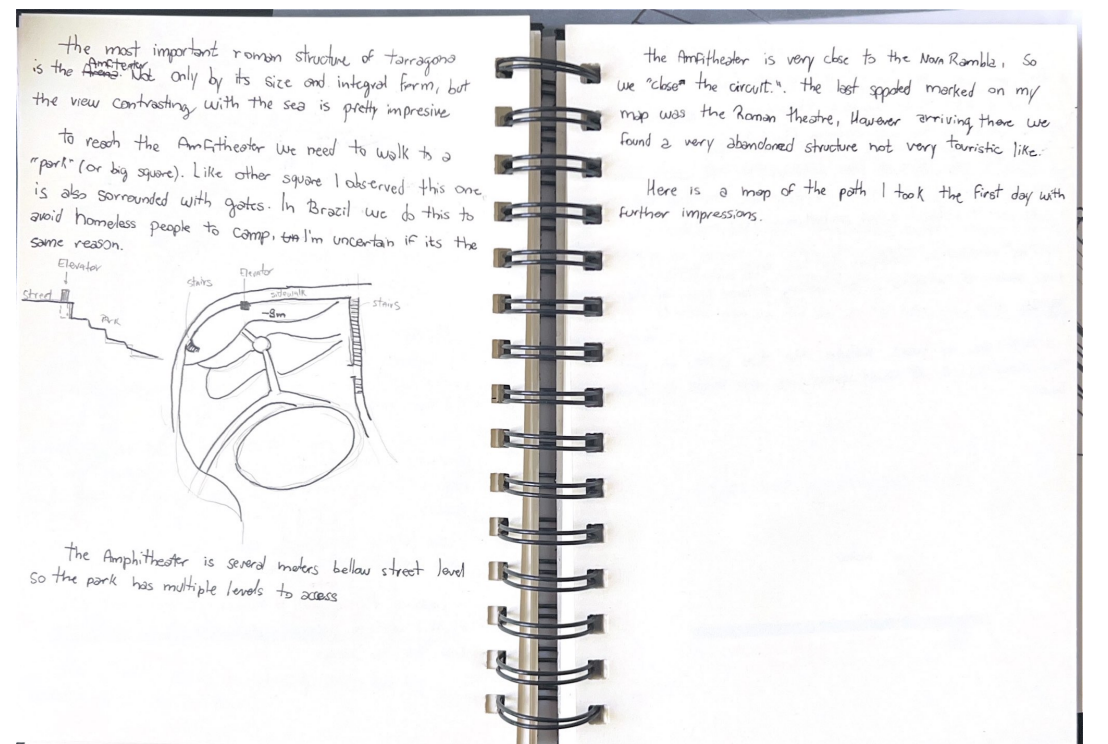 the most important roman structure of tarragona
is the Amfiteater. Not only by its size and integral form, but
the view contrasting with the sea is pretty impresive
to reach the Amfitheater we need to walk to a
"park" (or big square). Like other square I observed this one
is also sorrounded with gates. In Brazil we do this to
avoid homeless people to camp, I'm uncertain if its the
same reason.
Elevator
Street
Park
stairs
Elevator
sidewalk
-8m
stairs
the Amphitheater is several meters bellow street level
so the park has multiple levels to access
the Amfitheater is very close to the Nova Rambla, so
we "close" the circuit.". the last marked on my
map was the Roman theatre, However arriving there we
found a very abandoned structure not very touristic like.
Here is a map of the path I took the first day with
further impressions.